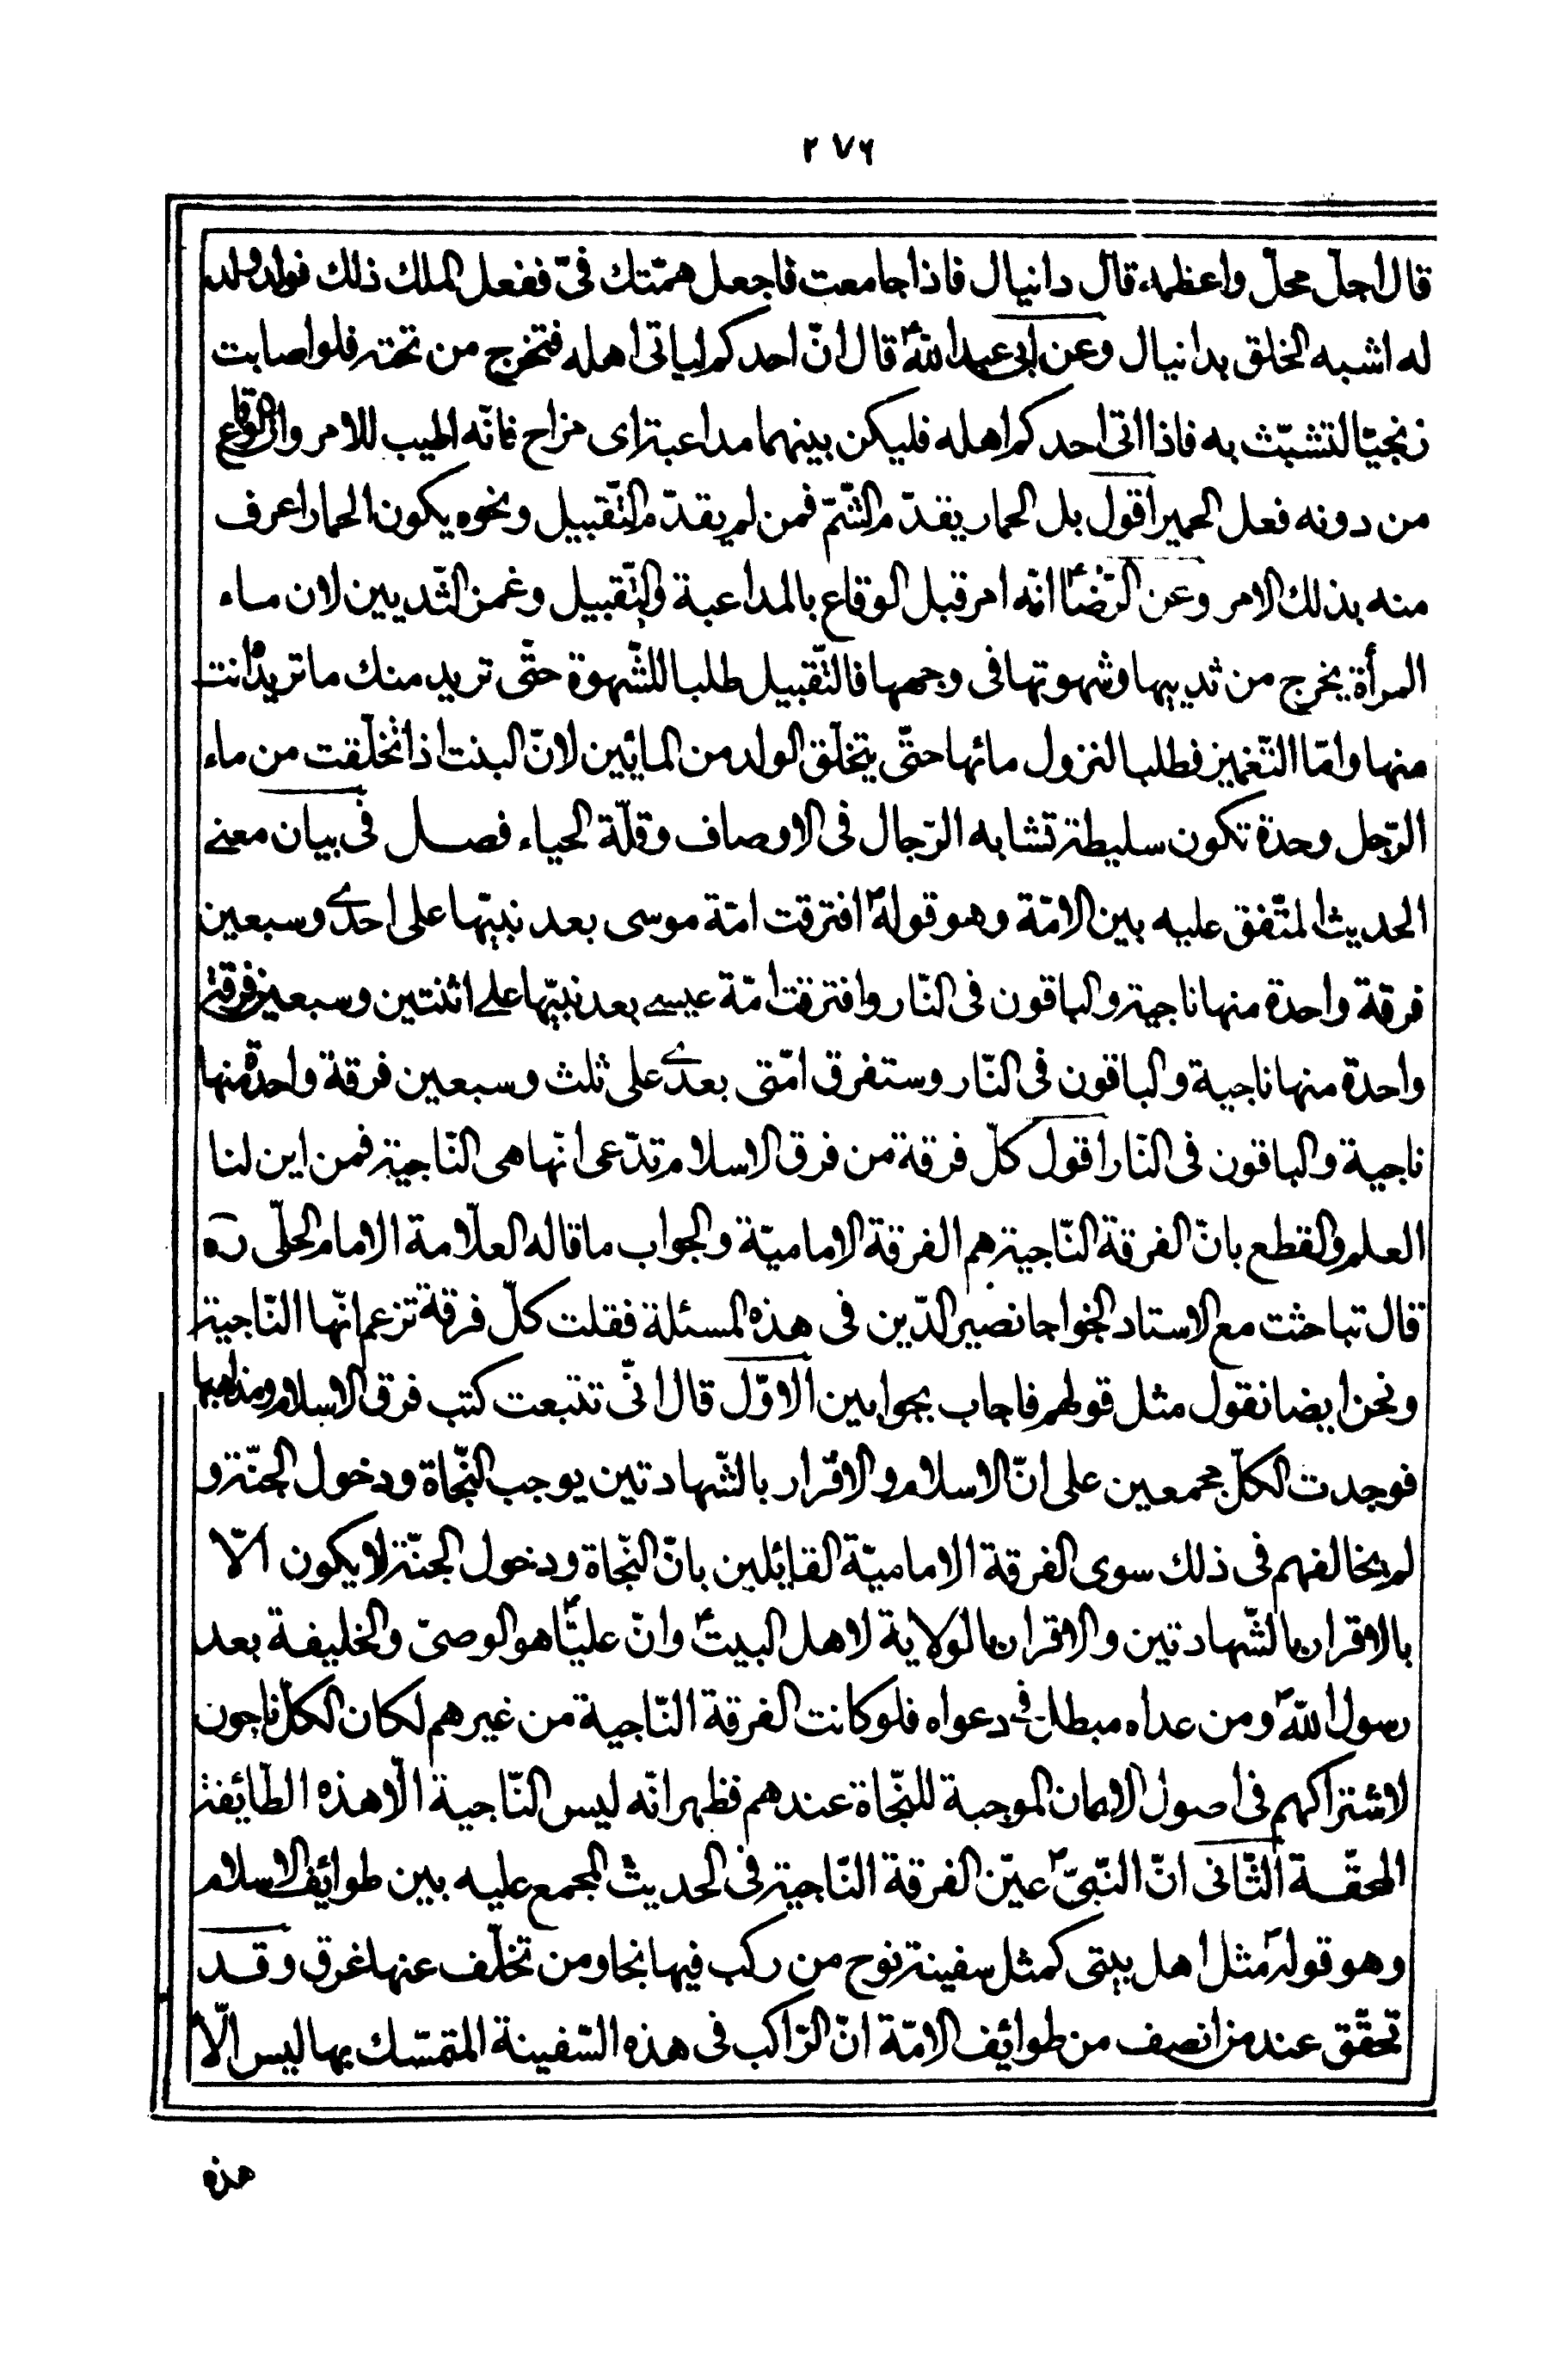 ٢٧٦
قال اجلّ محلّ واعظمه قال دانيال فاذا جامعت فاجعل همّتك فىّ ففعل الملك ذلك فولد ولد
له اشبه الخلق بدانيال وعن ابى عبد اللهؑ قال انّ احدكم لياتى اهله فتخرج من تحته فلو اصابت
زنجيّا لتشبّث به فاذا اتى احدكم اهله فليكن بينهما مداعبة اى مزاح فانّه اطيب للامر وان الوقاع
من دونه فعل الحمير اقول بل الحمار يقدّم الشّمّ فمن لم يقدّم التّقبيل ونحوه يكون الحمار اعرف
منه بذلك الامر وعن الرّضاؑ انّه امر قبل الوقاع بالمداعبة والتّقبيل وغمز الثّديين لان ماء
المرأة يخرج من ثدييها وشهوتها فى وجهها فالتّقبيل طلبا للشّهوة حتّى تريد منك ما تريد انت
منها وامّا التّغميز فطلبا لنزول مائها حتّى يتخلّق الولد من المايئين لانّ البنت اذا تخلّقت من ماء
الرّجل وحدة تكون سليطة تشابه الرّجال فى الاوصاف وقلّة الحياء فصل فى بيان معنى
الحديث المتّفق عليه بين الامّة وهو قولهؐ افترقت امّة موسى بعد نبيّها على احدى وسبعين
فرقة واحدة منها ناجية والباقون فى النّار وافترقت امّة عيسى بعد نبيّها على اثنتين وسبعين فرقة
واحدة منها ناجية والباقون فى النّار وستفرق امّتى بعدى على ثلث وسبعين فرقة واحدة منها
ناجية والباقون فى النّار اقول كلّ فرقة من فرق الاسلام تدّعى انّها هى النّاجية فمن اين لنا
العلم والقطع بانّ الفرقة النّاجية هم الفرقة الاماميّة والجواب ما قاله العلّامة الامام الحلّى ره
قال تباحثت مع الاستاد الخواجا نصير الدّين فى هذه المسئلة فقلت كلّ فرقة تزعم انّها النّاجية
ونحن ايضا نقول مثل قولهم فاجاب بجوابين الاوّل قال انّى تتبعت كتب فرق الاسلام ومذاهبها
فوجدت الكلّ مجمعين على انّ الاسلام والاقرار بالشّهادتين يوجب النّجاة ودخول الجنّة و
لم يخالفهم فى ذلك سوى الفرقة الاماميّة القايئلين بانّ النّجاة ودخول الجنّة لا يكون الّا
بالاقرار بالشّهادتين والاقرار بالولاية لاهل البيتؑ وانّ عليّاؑ هو الوصىّ والخليفة بعد
رسول اللهؐ ومن عداه مبطل فى دعواه فلو كانت الفرقة النّاجية من غيرهم لكان الكلّ ناجون
لاشتراكهم فى اصول الايمان الموجبة للنّجاة عندهم فظهر انّه ليس النّاجية الّا هذه الطّايئفة
المحقّة الثّانى انّ النّبىّؐ عيّن الفرقة النّاجية فى الحديث المجمع عليه بين طوايئف الاسلام
وهو قولهؐ مثل اهل بيتى كمثل سفينة نوح من ركب فيها نجا ومن تخلّف عنها غرق وقد
تحقّق عند من انصف من طوايئف الامّة انّ الرّاكب فى هذه السّفينة المتمسّك بها ليس الّا
هذه